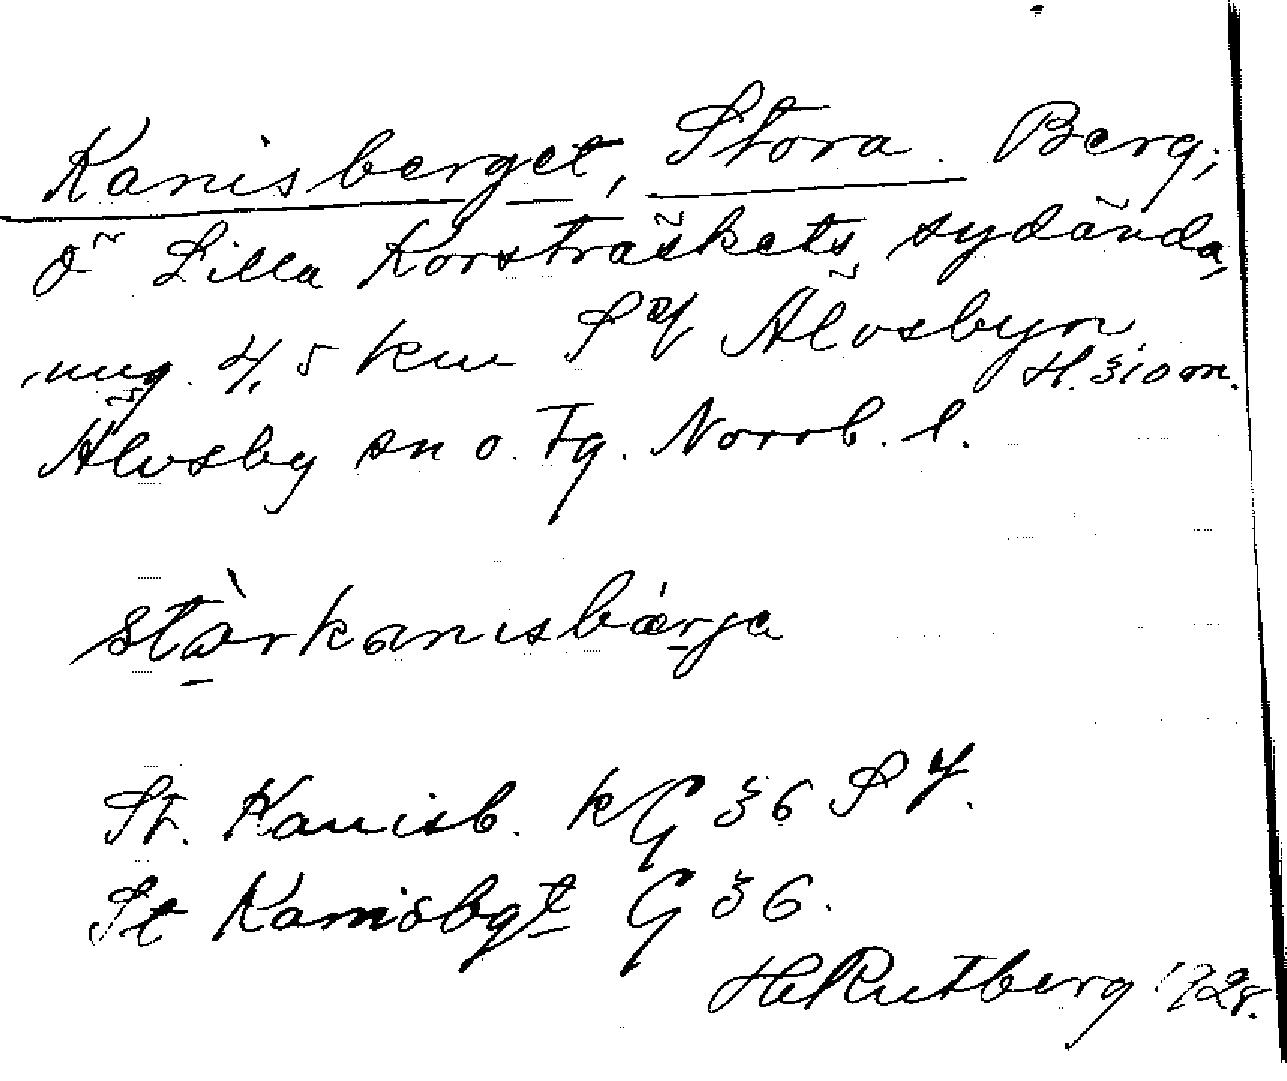 Kanisberget, Stora. Berg,
ö Lilla Korsträskets sydända,
ung. 4,5 km SV Älvsbyn. H. 310 m.
Älvsby sn o. tg. Norrb. l.
stàrkanisbárja
St. Kanisb. kG 36 SV.
St Kanisbgt G 36.
H Rutberg 1928.